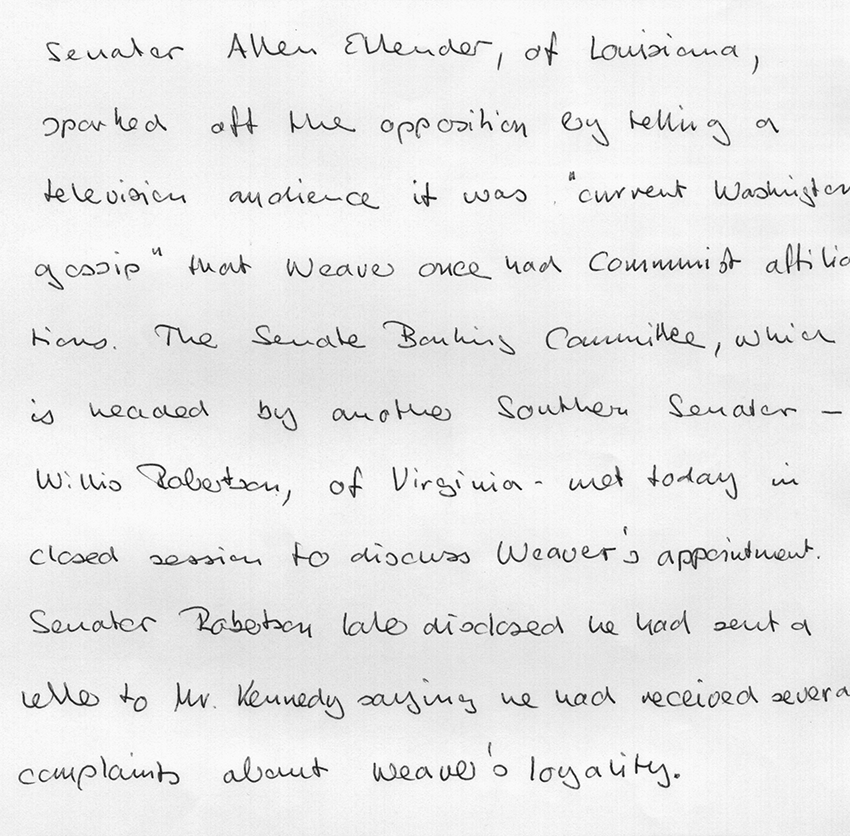 Senator Allen Ellender, of Louisiana,
sparked off the opposition by telling a
television audience it was "current Washington
gossip" that Weaver once had Communist affilia
tions. The Senate Banking Committee, which
is headed by another Southern Senator –
Willis Robertson, of Virginia - met today in
closed session to discuss Weaver's appointment.
Senator Robertson later disclosed he had sent a
letter to Mr. Kennedy saying he had received several
complaints about Weaver's loyality.